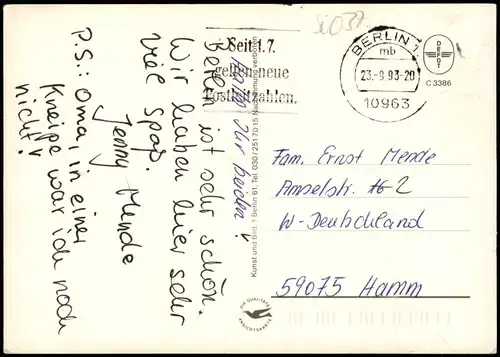 Berlin ist sehr schön.
Wir haben hier sehr
viel spaß.
Jenny Mende
P.S.: Oma, in einer
Kneipe war ich noch
nicht!
Seit 1.7.
gelten neue
Postleitzahlen.
BERLIN 1
mb
23.-9.93-20
10963
C 3386
Kunst und Bild, 1 Berlin 61, Tel. 030/251 70 15 Nachdruck verboten
DIE QUALITÄTS
ANSICHTSKARTE
Fam. Ernst Mende
Amselstr. 2
W-Deutschland
59075 Hamm